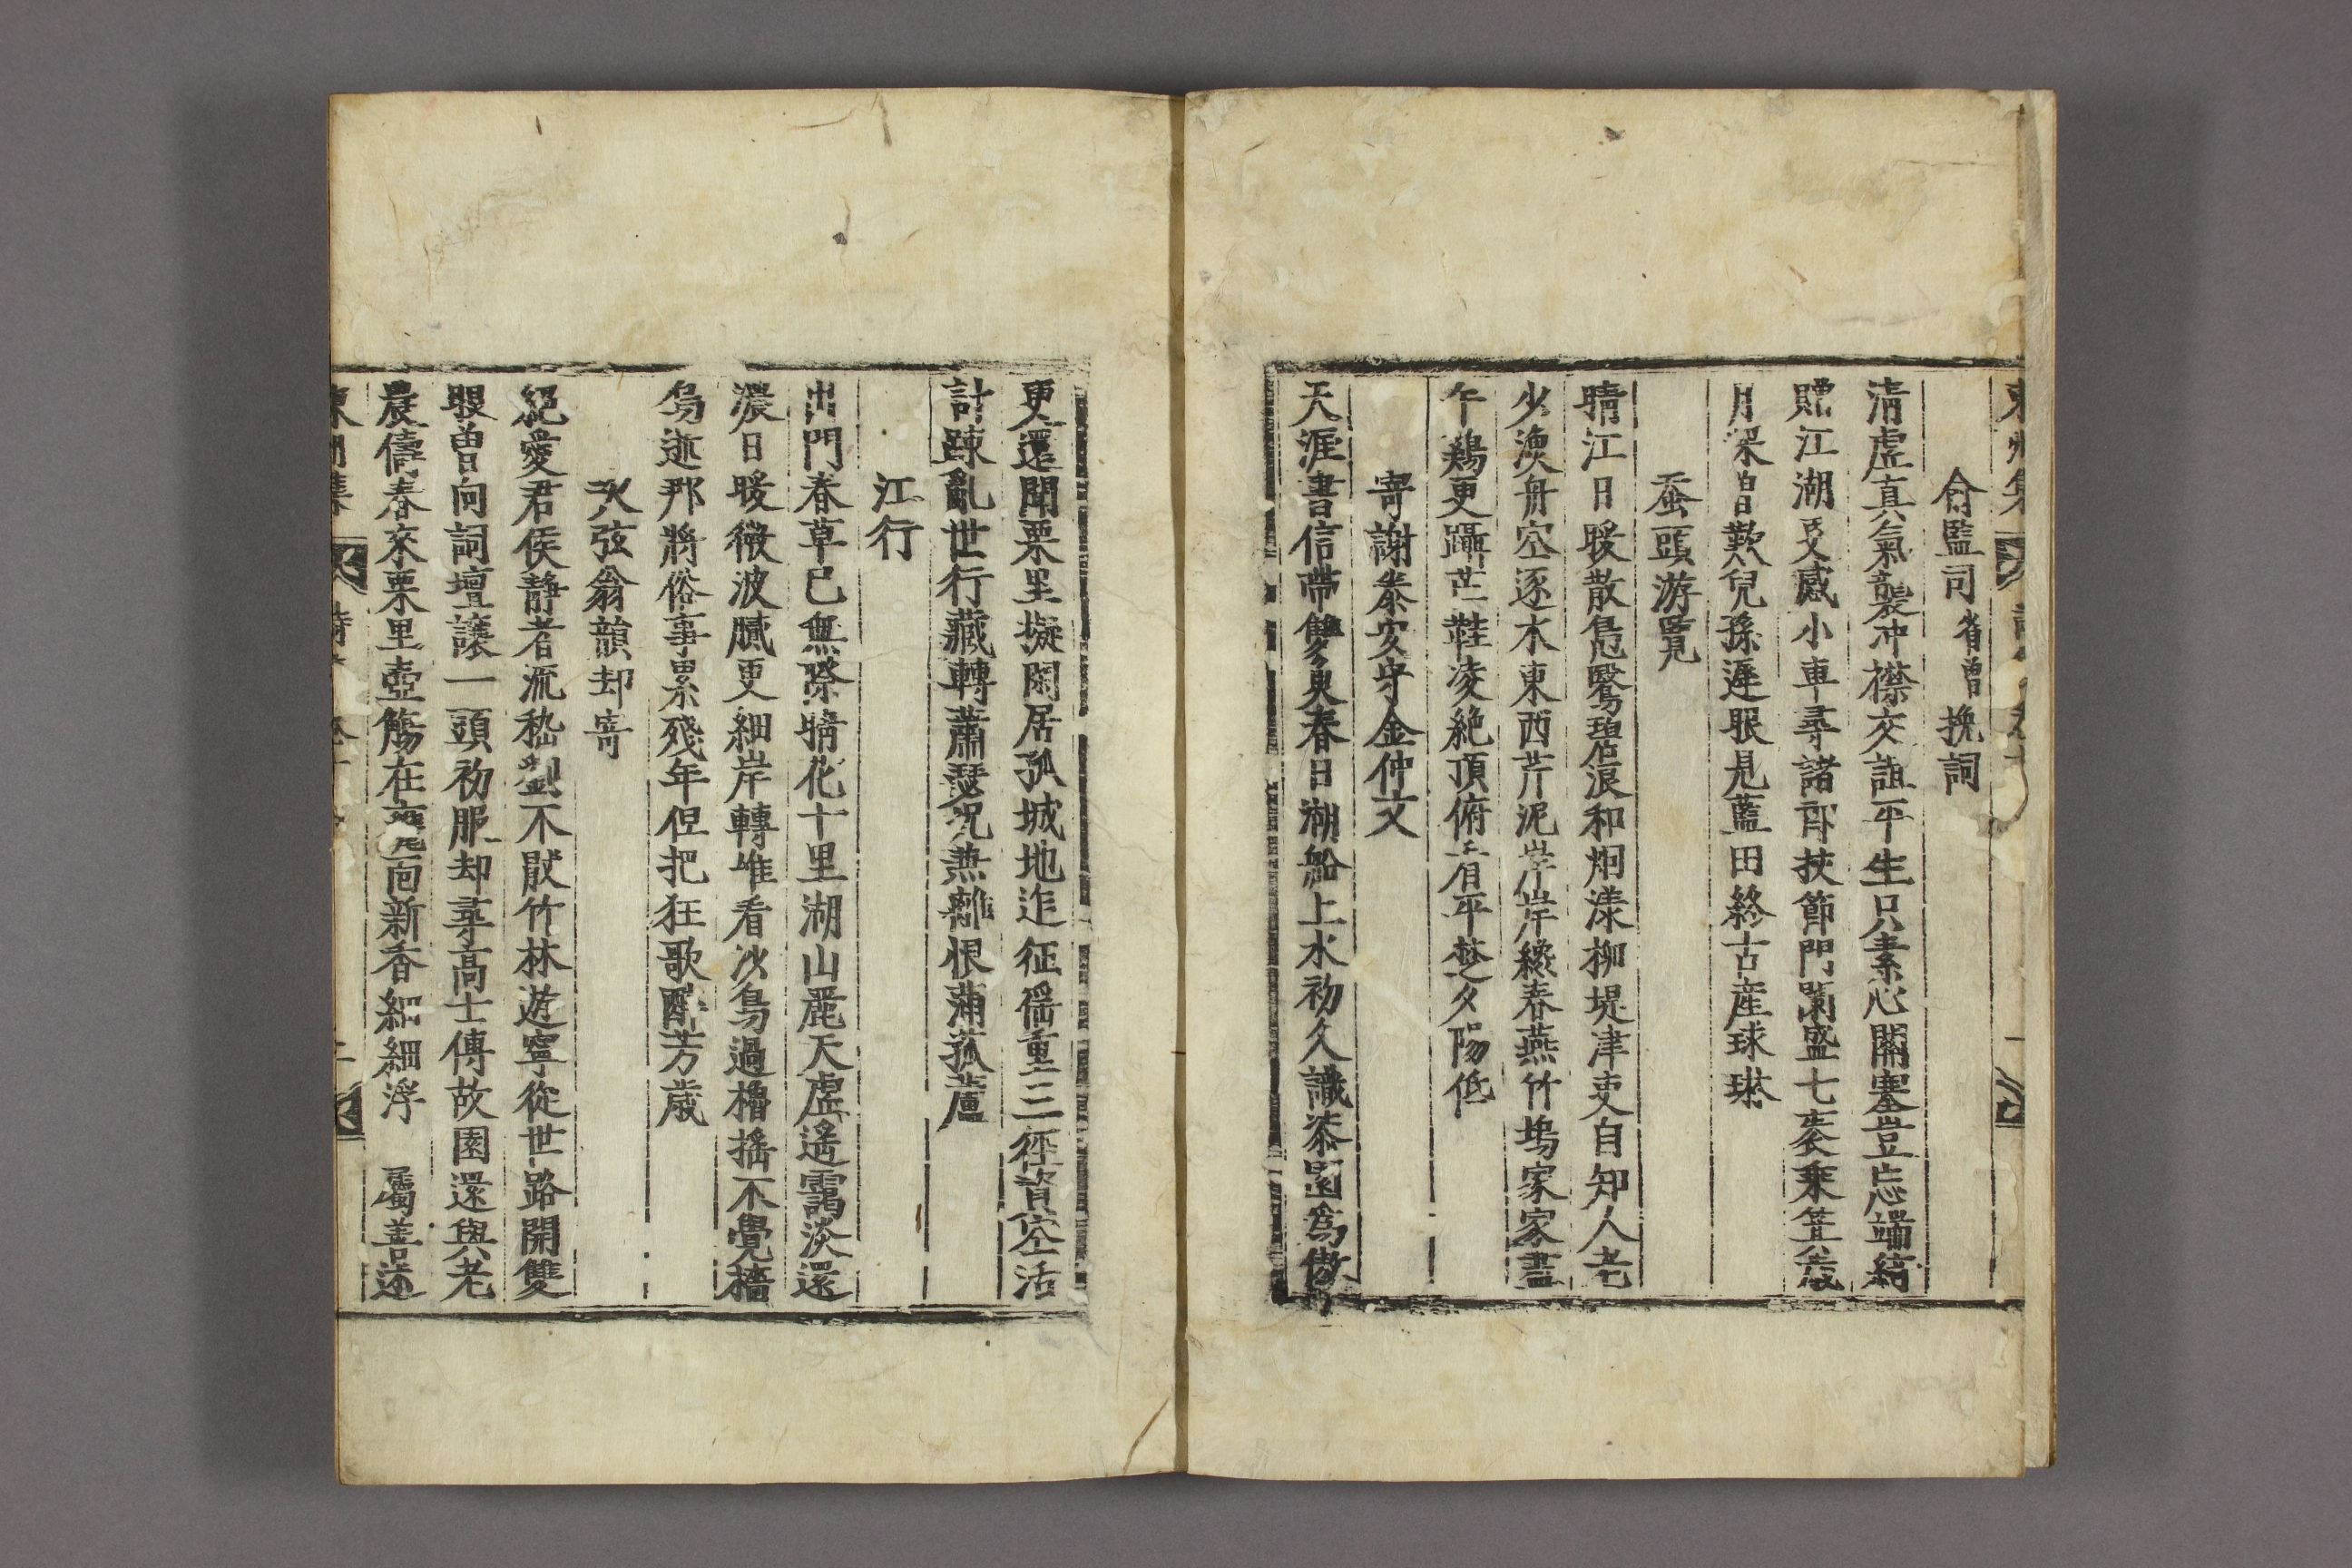 東州集
俞監司省曾挽詞
淸虛眞氣襲冲襟交誼平生只素心關塞豈忘端綺
贈江湖更感小車尋諸郞扶節門闌盛七袠乘箕歲
月深曾歎兒孫遲眼見藍田終古産球琳
蚕頭游覽
晴江日暖散鳧鷖碧浪和烟漾柳堤津吏自知人老
少漁舟空逐水東西芹泥岸岸繞春燕竹塢家家盡
午鷄更躡芒鞋凌絶頂俯看平楚夕陽低
寄謝泰安守金仲文
天涯書信帶雙臾春日潮船上水初久識漆園爲傲
吏還聞栗里擬閑居孤城地迮征徭重三徑資空活
計踈亂世行藏轉蕭瑟况兼離恨蒲菰蘆
江行
出門春草已無際晴化十里湖山麗天虛遙靄淡還
濃日暖微波膩更細岸轉唯看沙鳥過櫓搖不覺檣
烏逝那將俗事累殘年但把狂歌酬芳歲
次弦翁韻却寄
絶愛君侯靜者流嵇劉不猒竹林遊寧從世路開雙
眼曾向詞壇讓一頭初服却尋高士傳故園還與老
農儔春來栗里壺觴在甕面新香細細浮 屬善述
東州集